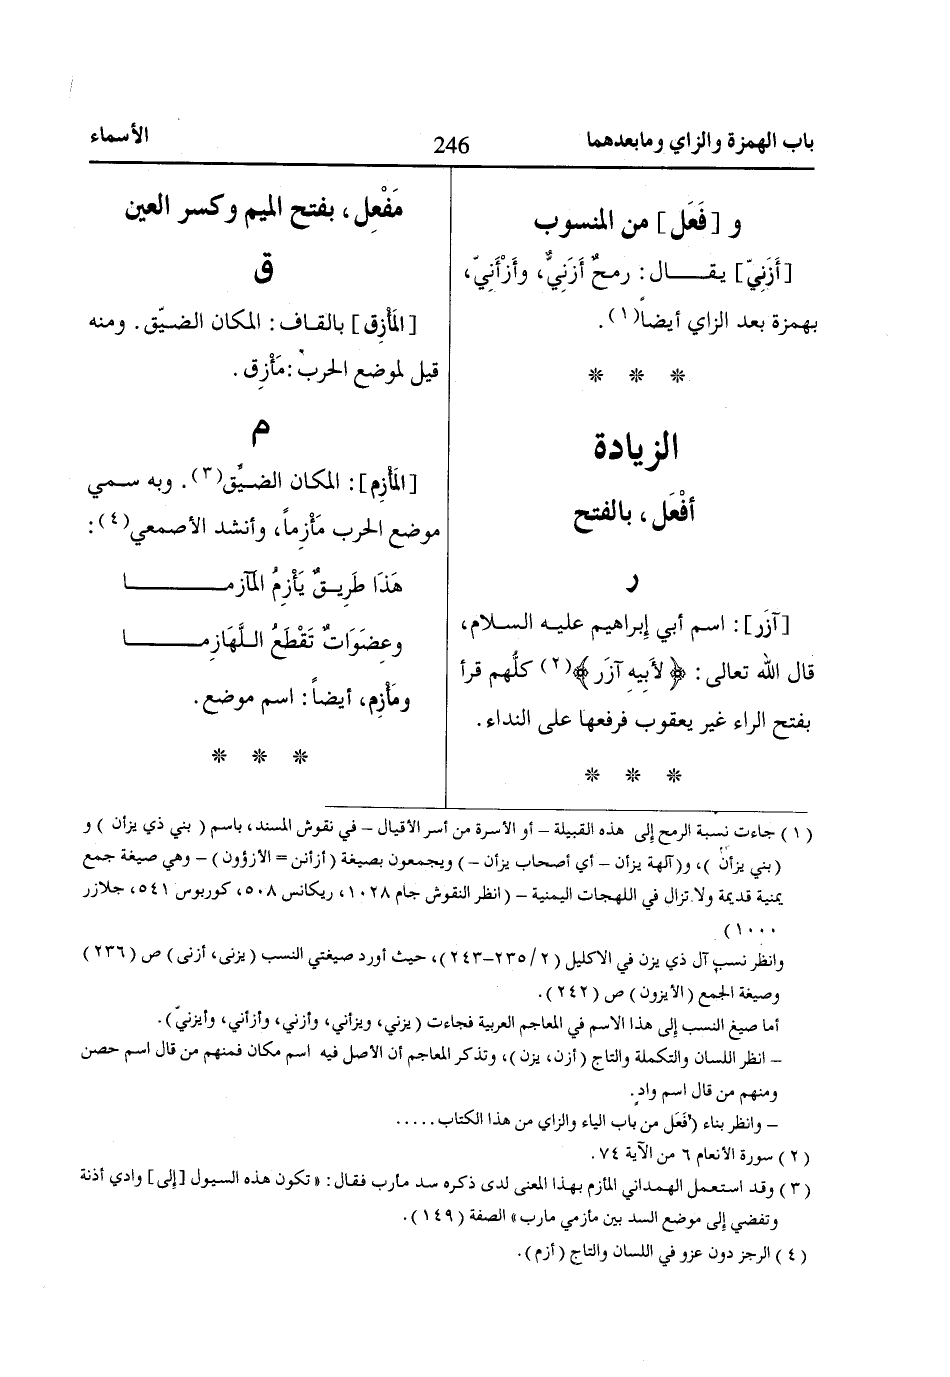 باب الهمزة والزاي ومابعدهما
246
الأسماء
و [فَعَل] من المنسوب
[أَزَنِيّ] يقـــال: رمحٌ أَزَنِيٌّ، وأَزْأَنِيّ،
بهمزة بعد الزاي أيضاً(١).
* * *
الزيادة
أفْعَل، بالفتح
ر
[آزَر]: اسم أبي إبراهيم عليه السلام،
قال الله تعالى: ﴿لأَبيهِ آزَر﴾(٢) كلُّهم قرأ
بفتح الراء غير يعقوب فرفعها على النداء.
* * *
مَفْعِل، بفتح الميم وكسر العين
ق
[المَأْزِق] بالقاف: المكان الضيّق. ومنه
قيل لموضع الحرب: مَأْزِق.
م
[المَأْزِم]: المكان الضيِّق(٣). وبه سمي
موضع الحرب مَأْزِماً، وأنشد الأصمعي(٤):
هَذَا طَرِيـقٌ يَأْزِمُ المَآزِمـــــا
وعِضَوَاتٌ تَقْطَعُ اللَّهَازِمـــــا
ومَأْزِم، أيضاً: اسم موضع.
* * *
(١) جاءت نسبة الرمح إلى هذه القبيلة – أو الأسرة من أسر الأقيال – في نقوش المسند، باسم (بني ذي يزأن) و
(بني يزأن)، و(آلهة يزأن – أي أصحاب يزأن –) ويجمعون بصيغة (أزأنن = الأزؤون) – وهي صيغة جمع
يمنية قديمة ولا تزال في اللهجات اليمنية – (انظر النقوش جام ١٠٢٨، ريكانس ٥٠٨، كوربوس ٥٤١، جلازر
١٠٠٠)
وانظر نسب آل ذي يزن في الاكليل (٢/ ٢٣٥–٢٤٣)، حيث أورد صيغتي النسب (يزنى، أزنى) ص (٢٣٦)
وصيغة الجمع (الأيزون) ص (٢٤٢).
أما صيغ النسب إلى هذا الاسم في المعاجم العربية فجاءت (يزني، ويزأني، وأزني، وأزأني، وأيزنيّ).
– انظر اللسان والتكملة والتاج (أزن، يزن)، وتذكر المعاجم أن الأصل فيه اسم مكان فمنهم من قال اسم حصن
ومنهم من قال اسم وادٍ.
– وانظر بناء (فَعَل من باب الياء والزاي من هذا الكتاب.....
(٢) سورة الأنعام ٦ من الآية ٧٤.
(٣) وقد استعمل الهمداني المأزم بهذا المعنى لدى ذكره سد مارب فقال: «تكون هذه السيول [إلى] وادي أذنة
وتفضي إلى موضع السد بين مأزمي مارب» الصفة (١٤٩).
(٤) الرجز دون عزو في اللسان والتاج (أزم).